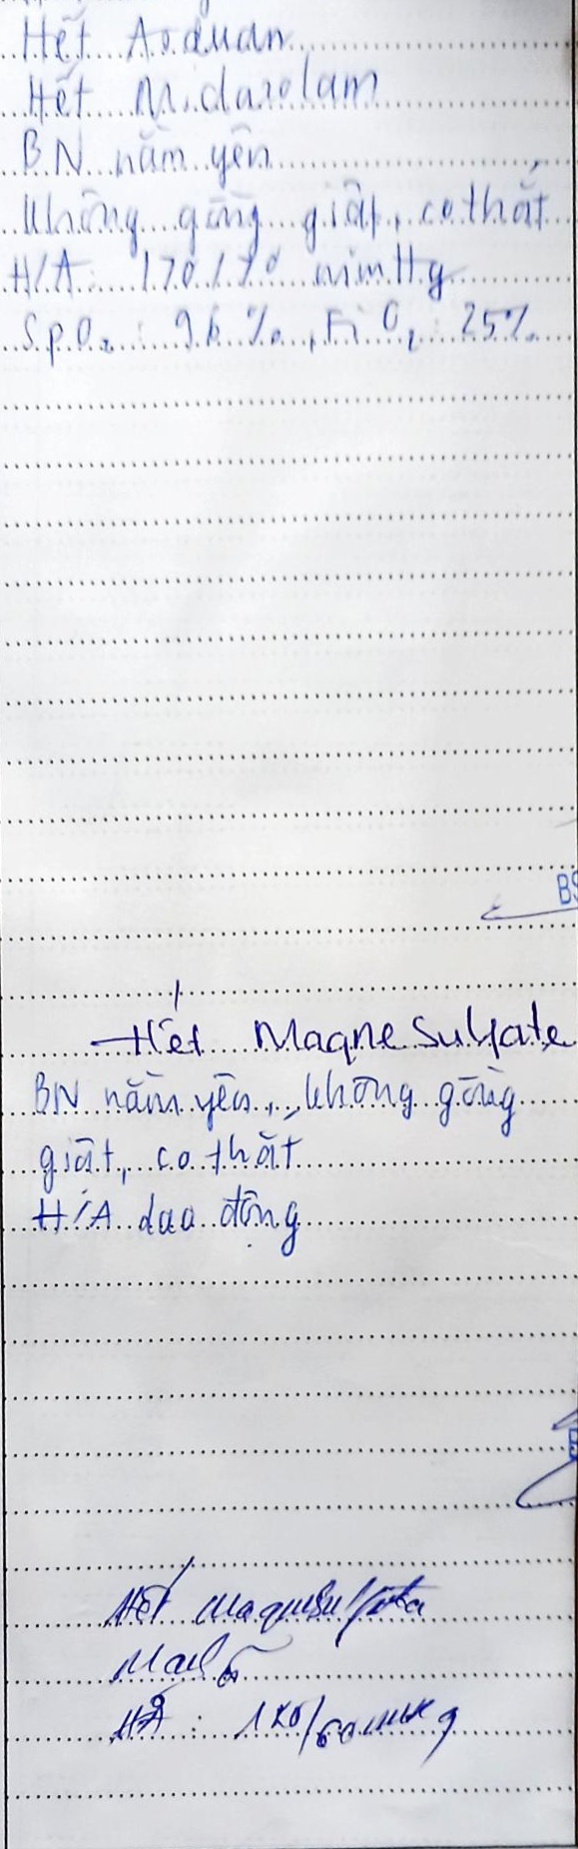 Hết Arduan
Hết Midazolam
BN nằm yên
không gồng giật, co thắt
H/A: 170/70 mmHg
SpO₂: 96%, FiO₂: 25%
BS
Hết MagneSulfate
BN nằm yên, không gồng
giật, co thắt
H/A dao động
Hết
HA: